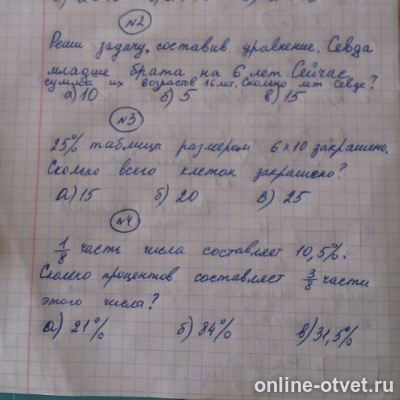 №2
Реши задачу, составив уравнение. Севда
младше брата на 6 лет. Сейчас
сумма их возрастов 16 лет. Сколько лет Севде?
а) 10 б) 5 в) 15
№3
25% таблицы размером 6×10 закрашено.
Сколько всего клеток закрашено?
а) 15 б) 20 в) 25
№4
1/8 часть числа составляет 10,5%.
Сколько процентов составляет 3/8 части
этого числа?
а) 21% б) 84% в) 31,5%
online-otvet.ru